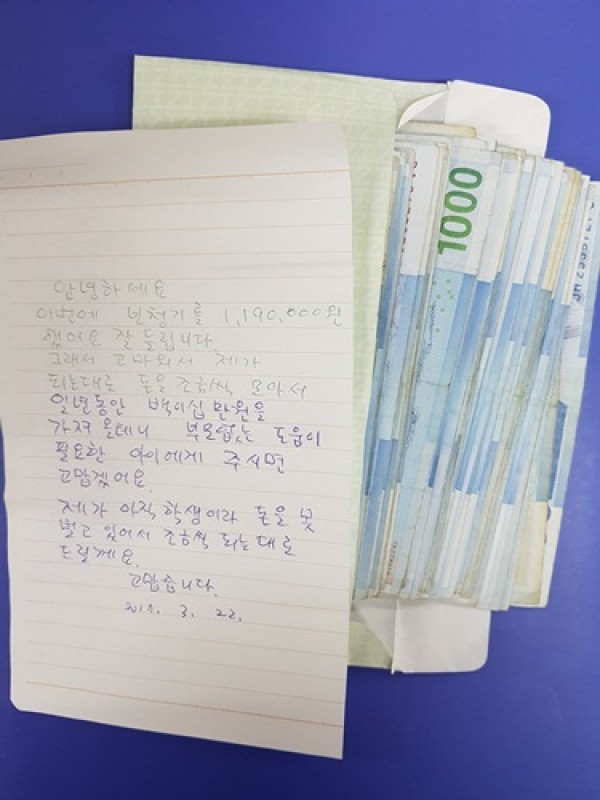 안녕하세요
이번에 보청기를 1,190,000원
했어요 잘 들립니다.
그래서 고마워서 제가
되는대로 돈을 조금씩 모아서
일년동안 백이십만원을
가져 올테니 부모없는 도움이
필요한 아이에게 주시면
고맙겠어요.
제가 아직 학생이라 돈을 못
벌고 있어서 조금씩 되는대로
드릴께요.
고맙습니다.
3. 22.
1000